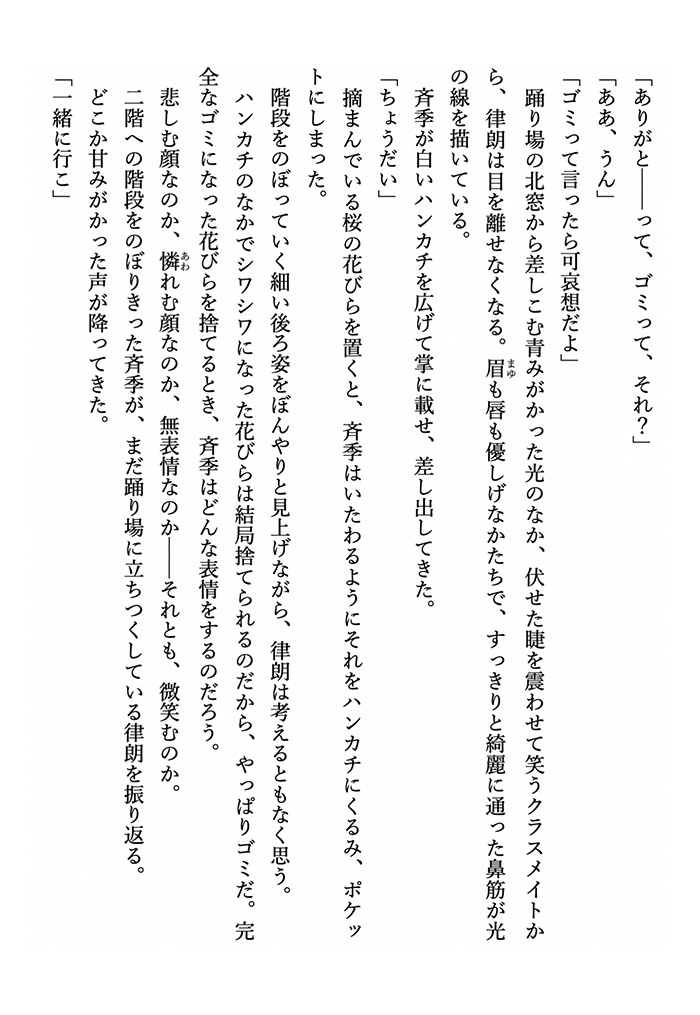 「ありがと――って、ゴミって、それ？」
「ああ、うん」
「ゴミって言ったら可哀想だよ」
　踊り場の北窓から差しこむ青みがかった光のなか、伏せた睫を震わせて笑うクラスメイトか
ら、律朗は目を離せなくなる。眉も唇も優しげなかたちで、すっきりと綺麗に通った鼻筋が光
の線を描いている。
　斉季が白いハンカチを広げて掌に載せ、差し出してきた。
「ちょうだい」
　摘まんでいる桜の花びらを置くと、斉季はいたわるようにそれをハンカチにくるみ、ポケッ
トにしまった。
　階段をのぼっていく細い後ろ姿をぼんやりと見上げながら、律朗は考えるともなく思う。
　ハンカチのなかでシワシワになった花びらは結局捨てられるのだから、やっぱりゴミだ。完
全なゴミになった花びらを捨てるとき、斉季はどんな表情をするのだろう。
　悲しむ顔なのか、憐れむ顔なのか、無表情なのか――それとも、微笑むのか。
　二階への階段をのぼりきった斉季が、まだ踊り場に立ちつくしている律朗を振り返る。
　どこか甘みがかった声が降ってきた。
「一緒に行こ」
まゆ
あわ